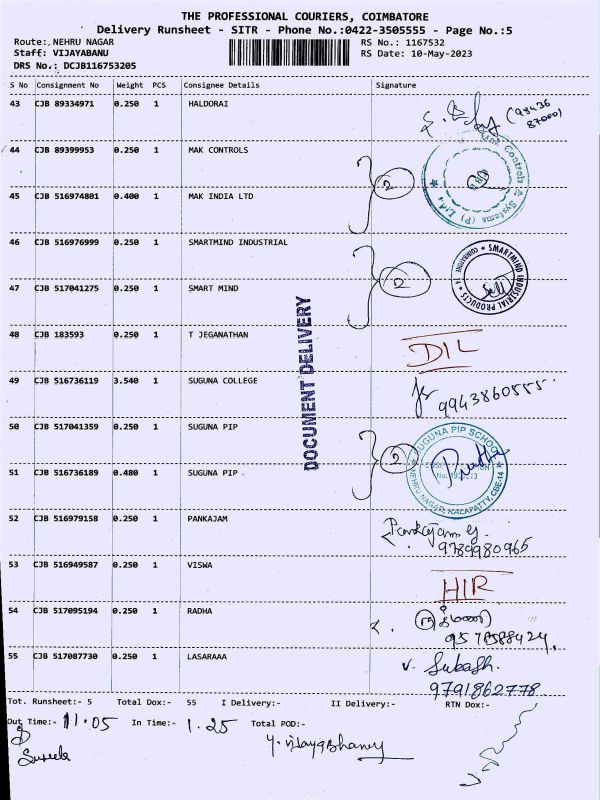 THE PROFESSIONAL COURIERS, COIMBATORE
Delivery Runsheet - SITR - Phone No.:0422-3505555 - Page No.:5
Route:. NEHRU NAGAR RS No.: 1167532
Staff: VIJAYABANU RS Date: 10-May-2023
DRS No.: DCJB116753205
S No Consignment No Weight PCS Consignee Details Signature
43 CJB 89334971 0.250 1 HALDORAI
44 CJB 89399953 0.250 1 MAK CONTROLS
2
Controls & Systems (P) Ltd
45 CJB 516974801 0.400 1 MAK INDIA LTD
46 CJB 516976999 0.250 1 SMARTMIND INDUSTRIAL
2
SMARTMIND INDUSTRIAL PRODUCTS
47 CJB 517041275 0.250 1 SMART MIND
DOCUMENT DELIVERY
48 CJB 183593 0.250 1 T JEGANATHAN
DIL
49 CJB 516736119 3.540 1 SUGUNA COLLEGE
9943860555
50 CJB 517041359 0.250 1 SUGUNA PIP
2
SUGUNA PIP SCHOOL
NEHRU NAGAR, KALAPATTY, CBE-14
51 CJB 516736189 0.480 1 SUGUNA PIP
52 CJB 516979158 0.250 1 PANKAJAM
Pankajam
9789980965
53 CJB 516949587 0.250 1 VISWA
HIR
54 CJB 517095194 0.250 1 RADHA
9578588424
55 CJB 517087730 0.250 1 LASARAAA
V. Subash.
9791862778
Tot. Runsheet:- 5 Total Dox:- 55 I Delivery:- II Delivery:- RTN Dox:-
Out Time:- 11.05 In Time:- 1.25 Total POD:-
Y. Vijayabhanu